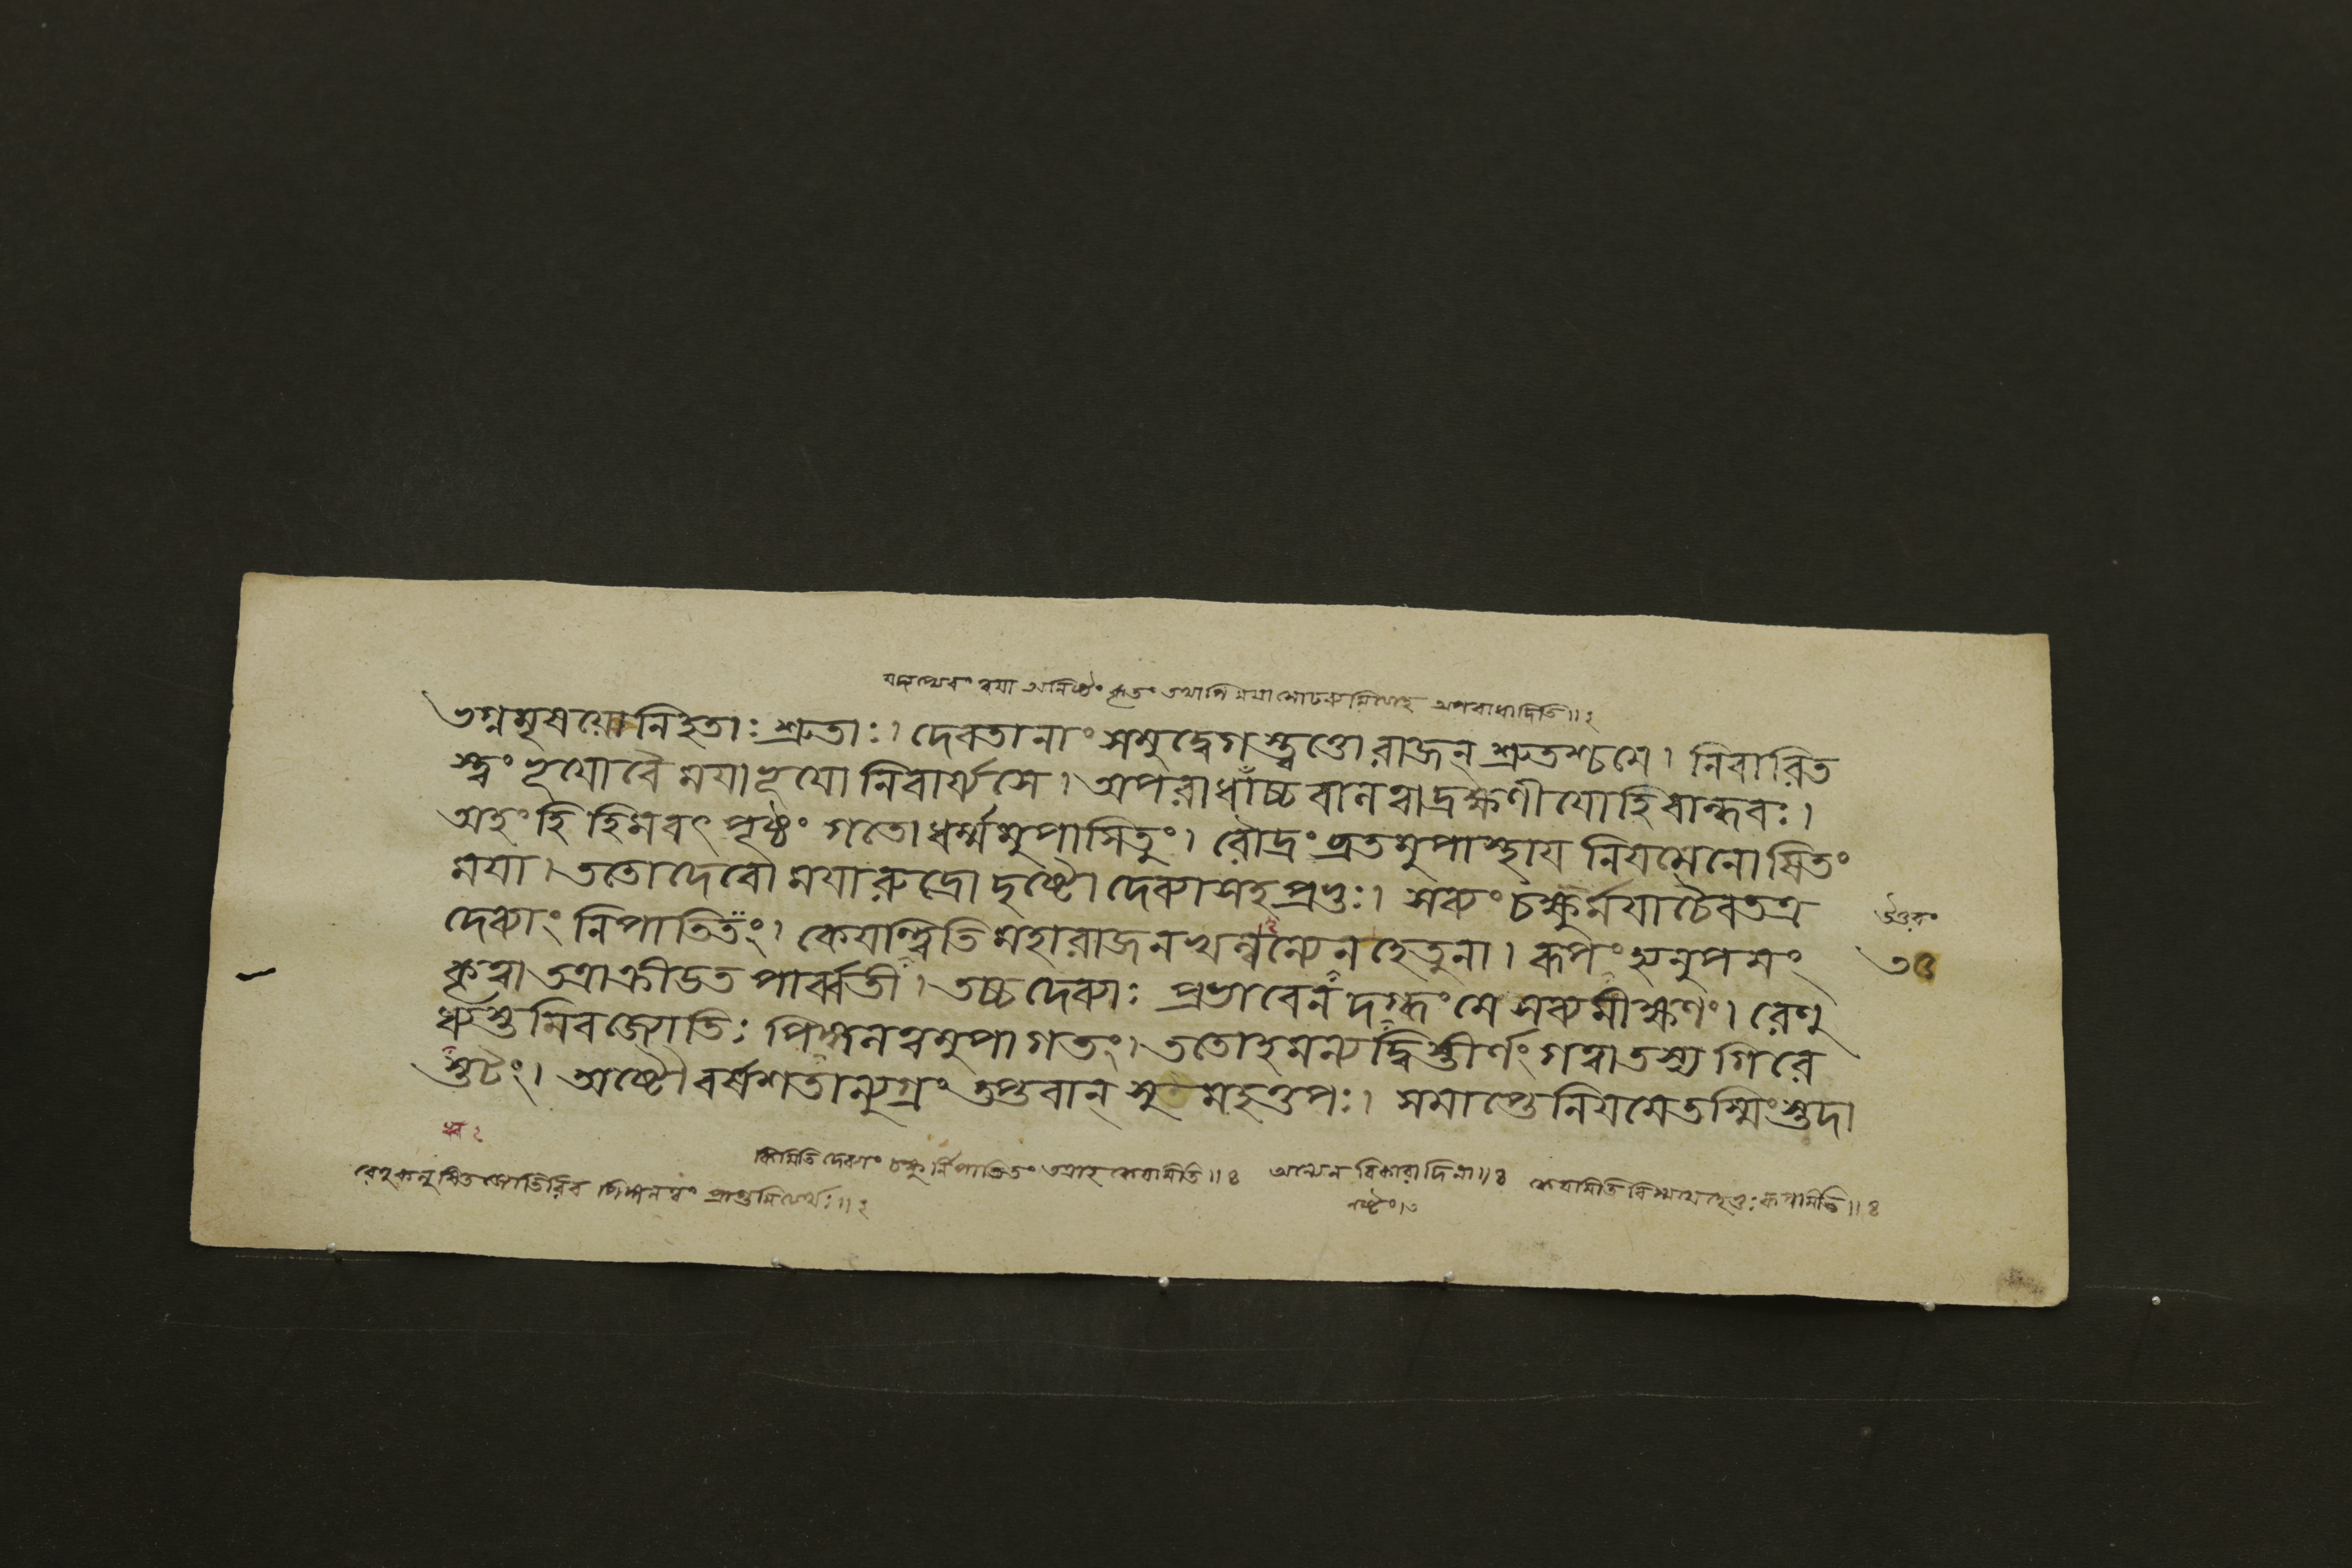 ভগ্নমৃষয়ো নিহতাঃ শ্রুতাঃ। দেবতানাং সমুদ্বেগস্ত্বত্তো রাজন্ শ্রুতশ্চমে। নিবারিত
স্ত্বং ভূযো বৈ মযা ভূযো নিবার্য্যসে। অপরাধাঁচ্চ বানত্বাদ্রক্ষণীযোহি বান্ধবঃ।
অহংহি হিমবৎ পৃষ্ঠং গতো ধর্ম্মমুপাসিতুং। রৌদ্রং ব্রতমুপাস্থায নিযমেনোষিতং
মযা। ততো দেবো মযা রুদ্রো দৃষ্টো দেব্যাসহ প্রভুঃ। সব্যং চক্ষুর্মযা চৈব তত্র
দেব্যাং নিপাতিতং। কেযান্ত্বিতি মহারাজ নখন্বন্যেন হেতুনা। রূপং হ্যনুপমং
কৃত্বা তত্রাক্রীডত পার্ব্বতী। তচ্চ দেব্যাঃ প্রভাবেন দগ্ধং মে সব্যমীক্ষণং। রেণু
ধ্বস্তমিব জ্যোতিঃ পিঙ্গলত্বমুপাগতং। ততোহমন্যদ্বিস্তীর্ণং গত্বা তস্য গিরে
স্তটং। অষ্টৌ বর্ষশতান্যুগ্রং তপ্তবান্ সুমহত্তপঃ। সমাপ্তে নিযমে তস্মিংস্তদা
উত্তরং
কিমিতি দেব্যাং চক্ষুর্নিপাতিতং তত্রাহ কেযামিতি॥৪
অন্যেন বিকারাদিনা॥৪
নষ্টং।৩